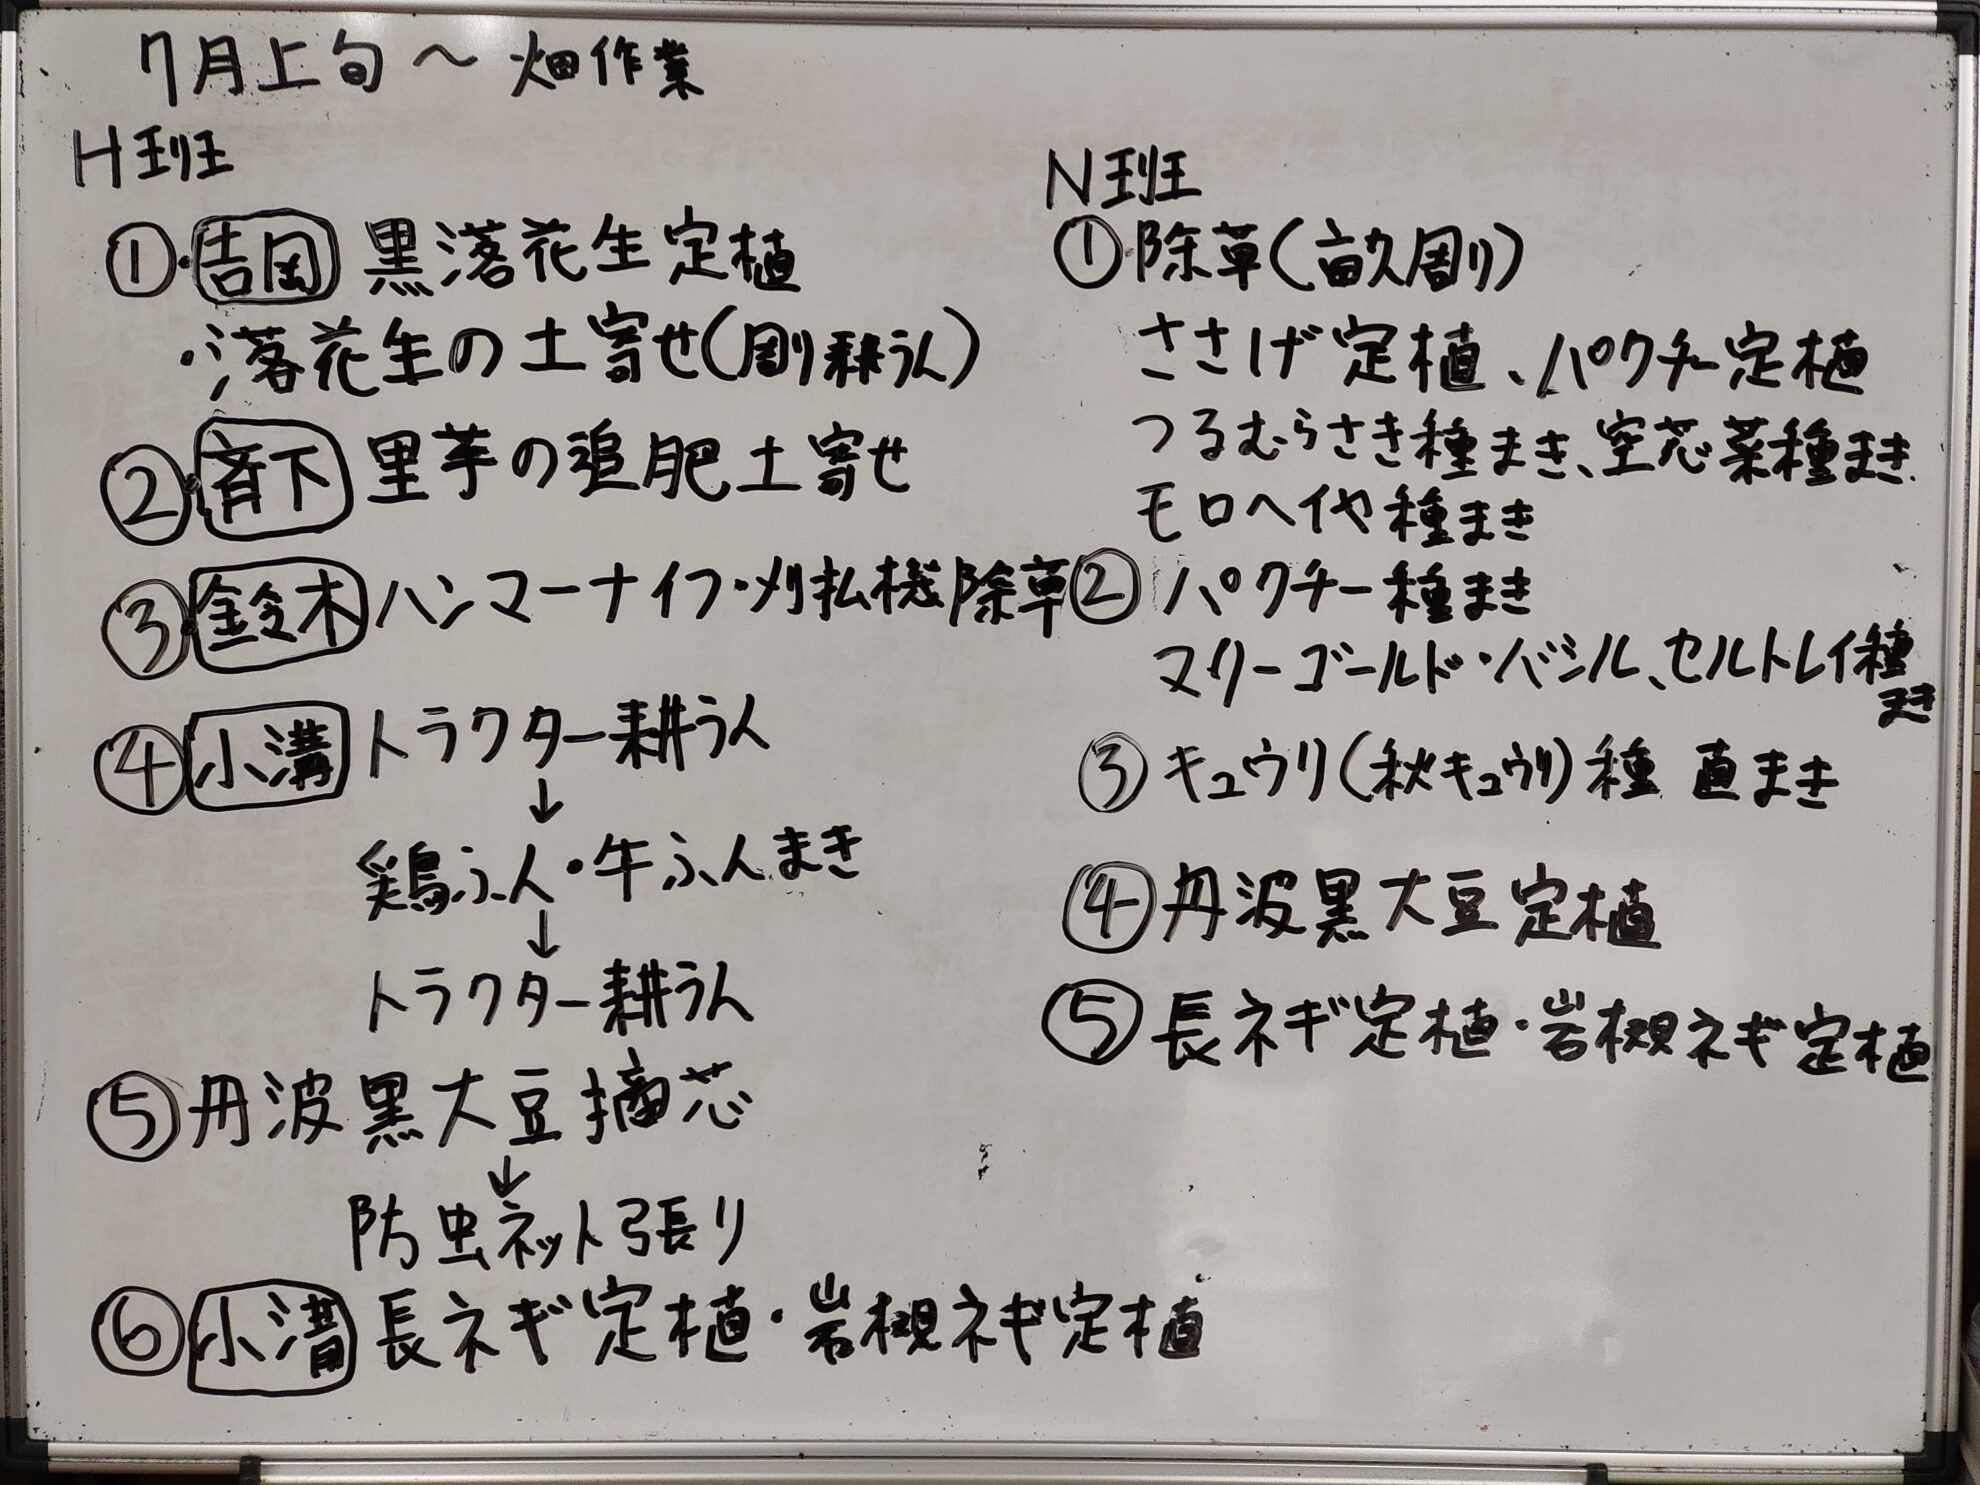 7月上旬～畑作業
H班
①・吉岡 黒落花生定植
・落花生の土寄せ(周り耕うん)
②・斉下 里芋の追肥土寄せ
③・鈴木 ハンマーナイフ・刈払機除草
④ 小溝 トラクター耕うん
↓
鶏ふん・牛ふんまき
↓
トラクター耕うん
⑤ 丹波黒大豆摘芯
↓
防虫ネット張り
⑥ 小溝 長ネギ定植・岩槻ネギ定植
N班
①・除草(畝周り)
ささげ定植、パクチー定植
つるむらさき種まき、空芯菜種まき、
モロヘイヤ種まき
② パクチー種まき
マリーゴールド・バジル、セルトレイ種
まき
③ キュウリ(秋キュウリ)種 直まき
④ 丹波黒大豆定植
⑤ 長ネギ定植・岩槻ネギ定植